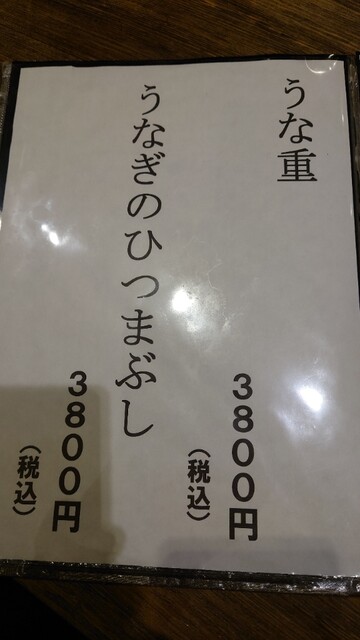 うな重
3800円
（税込）
うなぎのひつまぶし
3800円
（税込）